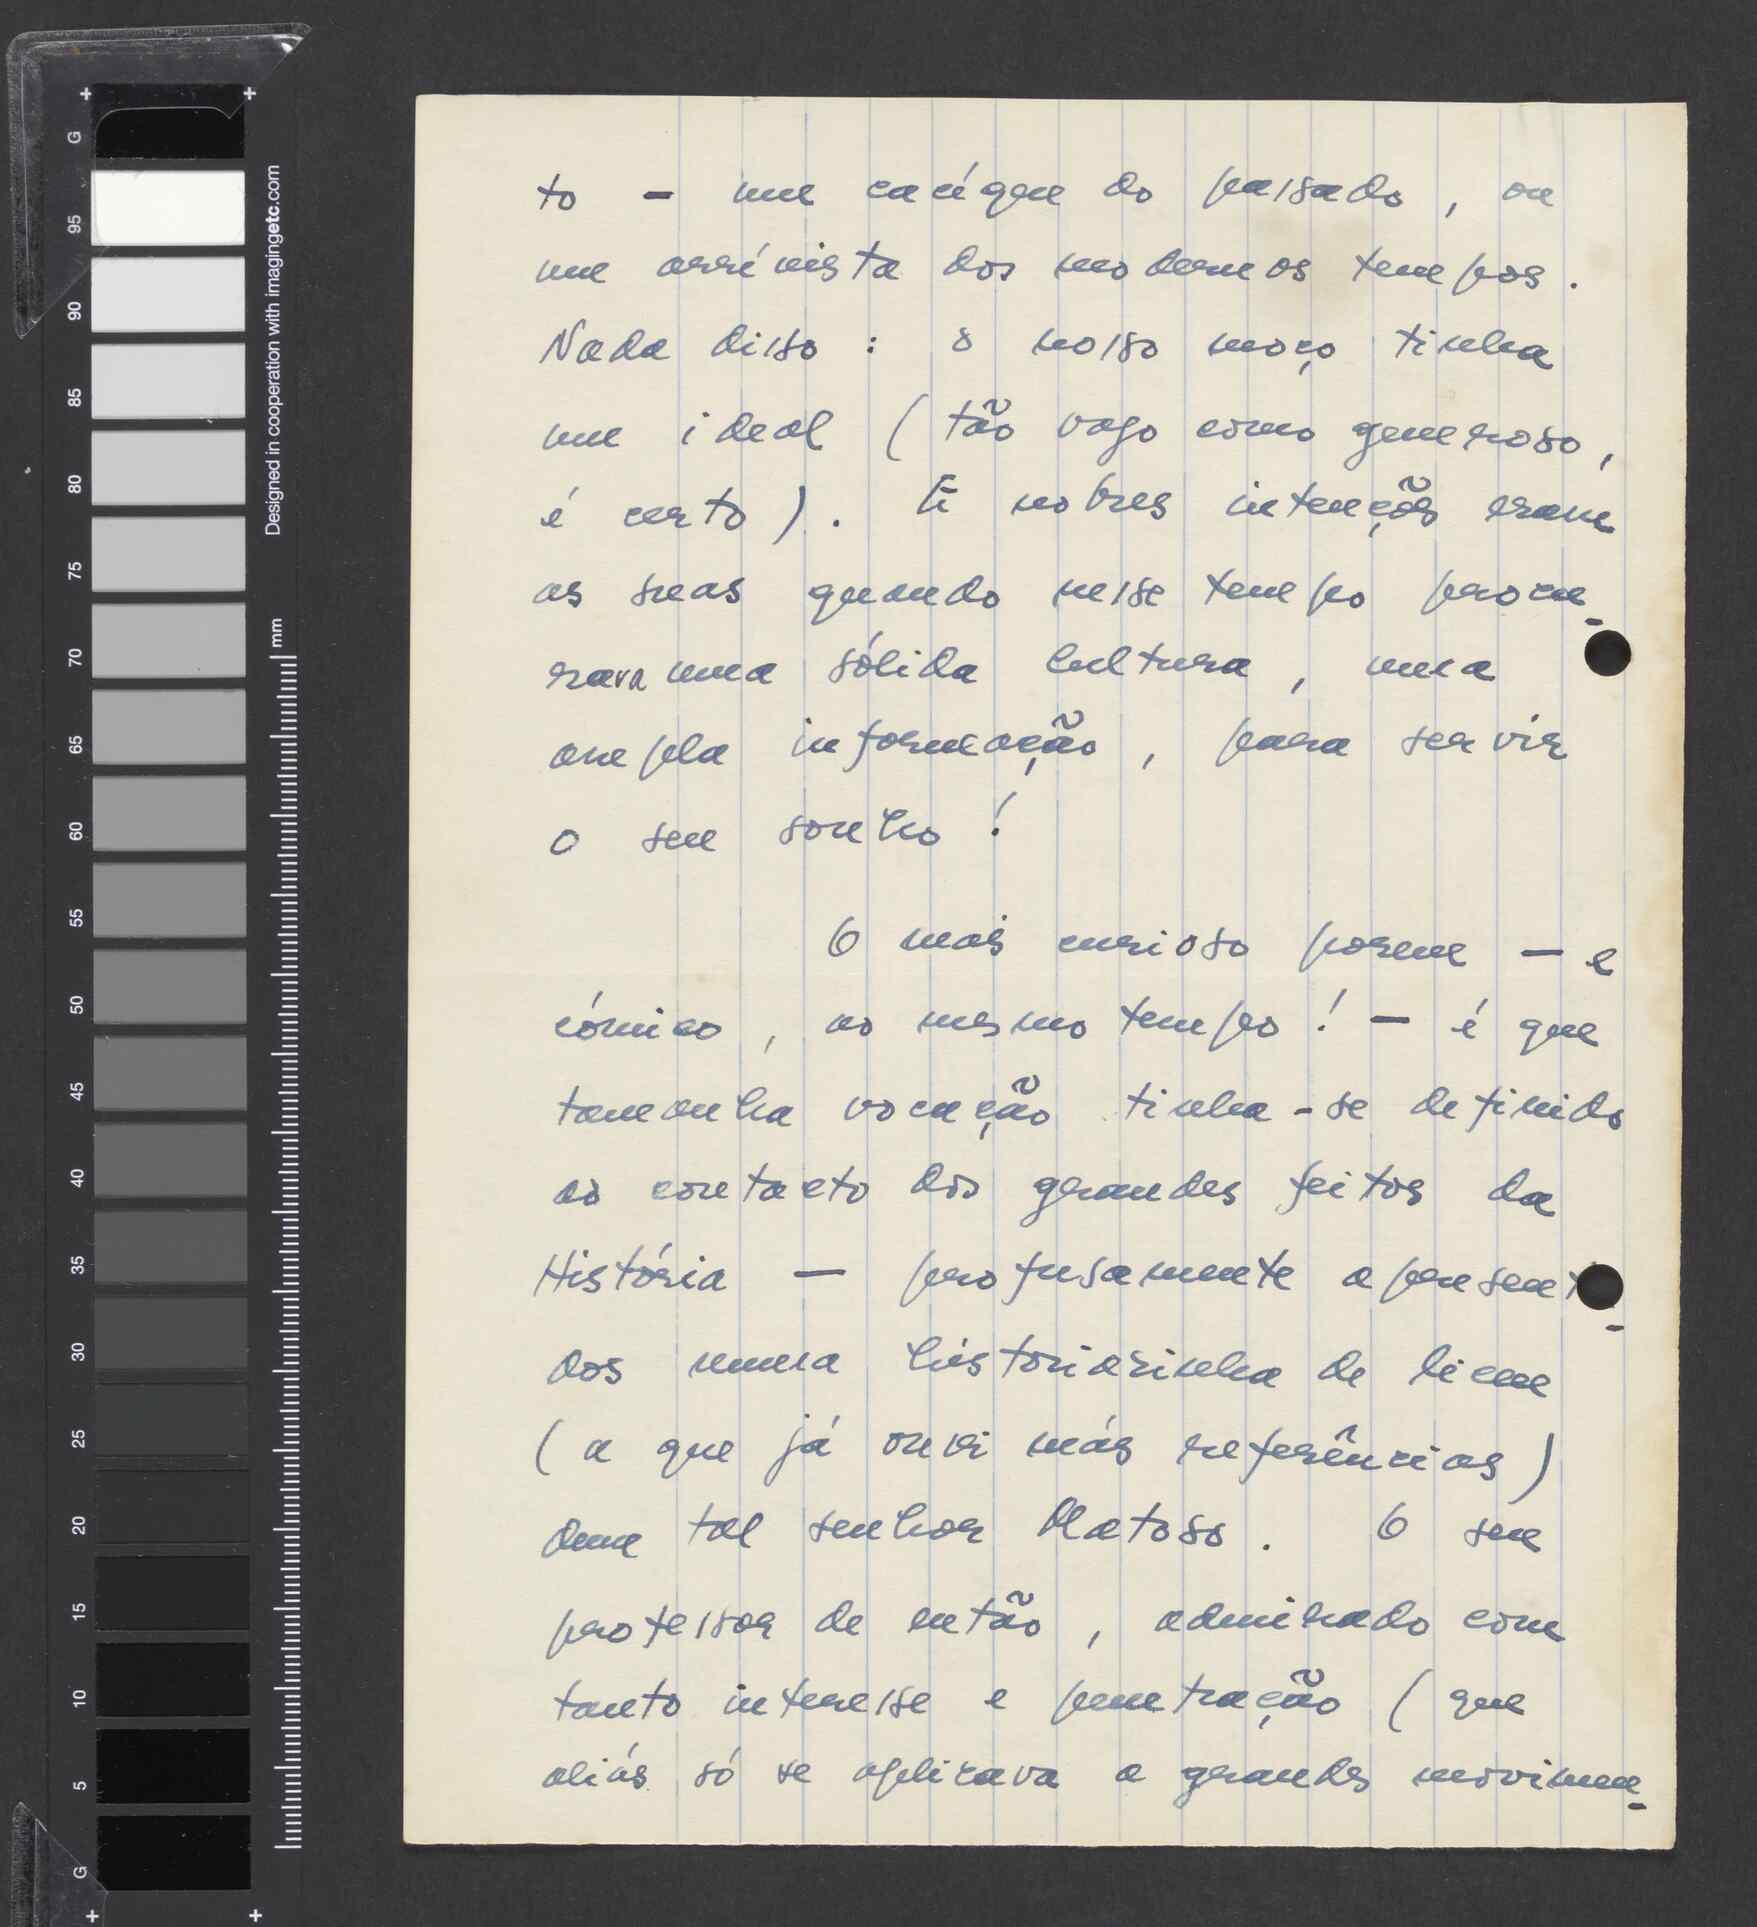 to - um cacique do passado, ou
um arrivista dos modernos tempos.
Nada disso: o nosso moço tinha
um ideal (tão vago como generoso,
é certo). E nobres intenções eram
as suas quando nesse tempo procu-
rava uma sólida cultura, uma
ampla informação, para servir
o seu sonho!
O mais curioso porem — e
cómico, ao mesmo tempo! — é que
tamanha vocação tinha-se definido
ao contacto dos grandes feitos da
História — profusamente apresent
dos numa historiazinha de liceu
(a que já ouvi más referências)
dum tal senhor Matoso. O seu
professor de então, admirado com
tanto interesse e penetração (que
aliás só se aplicava a grandes movimen-
G
95
90
85
80
75
70
65
60
55
50
45
40
35
30
25
20
15
10
5
G
Designed in cooperation with imagingetc.com
mm